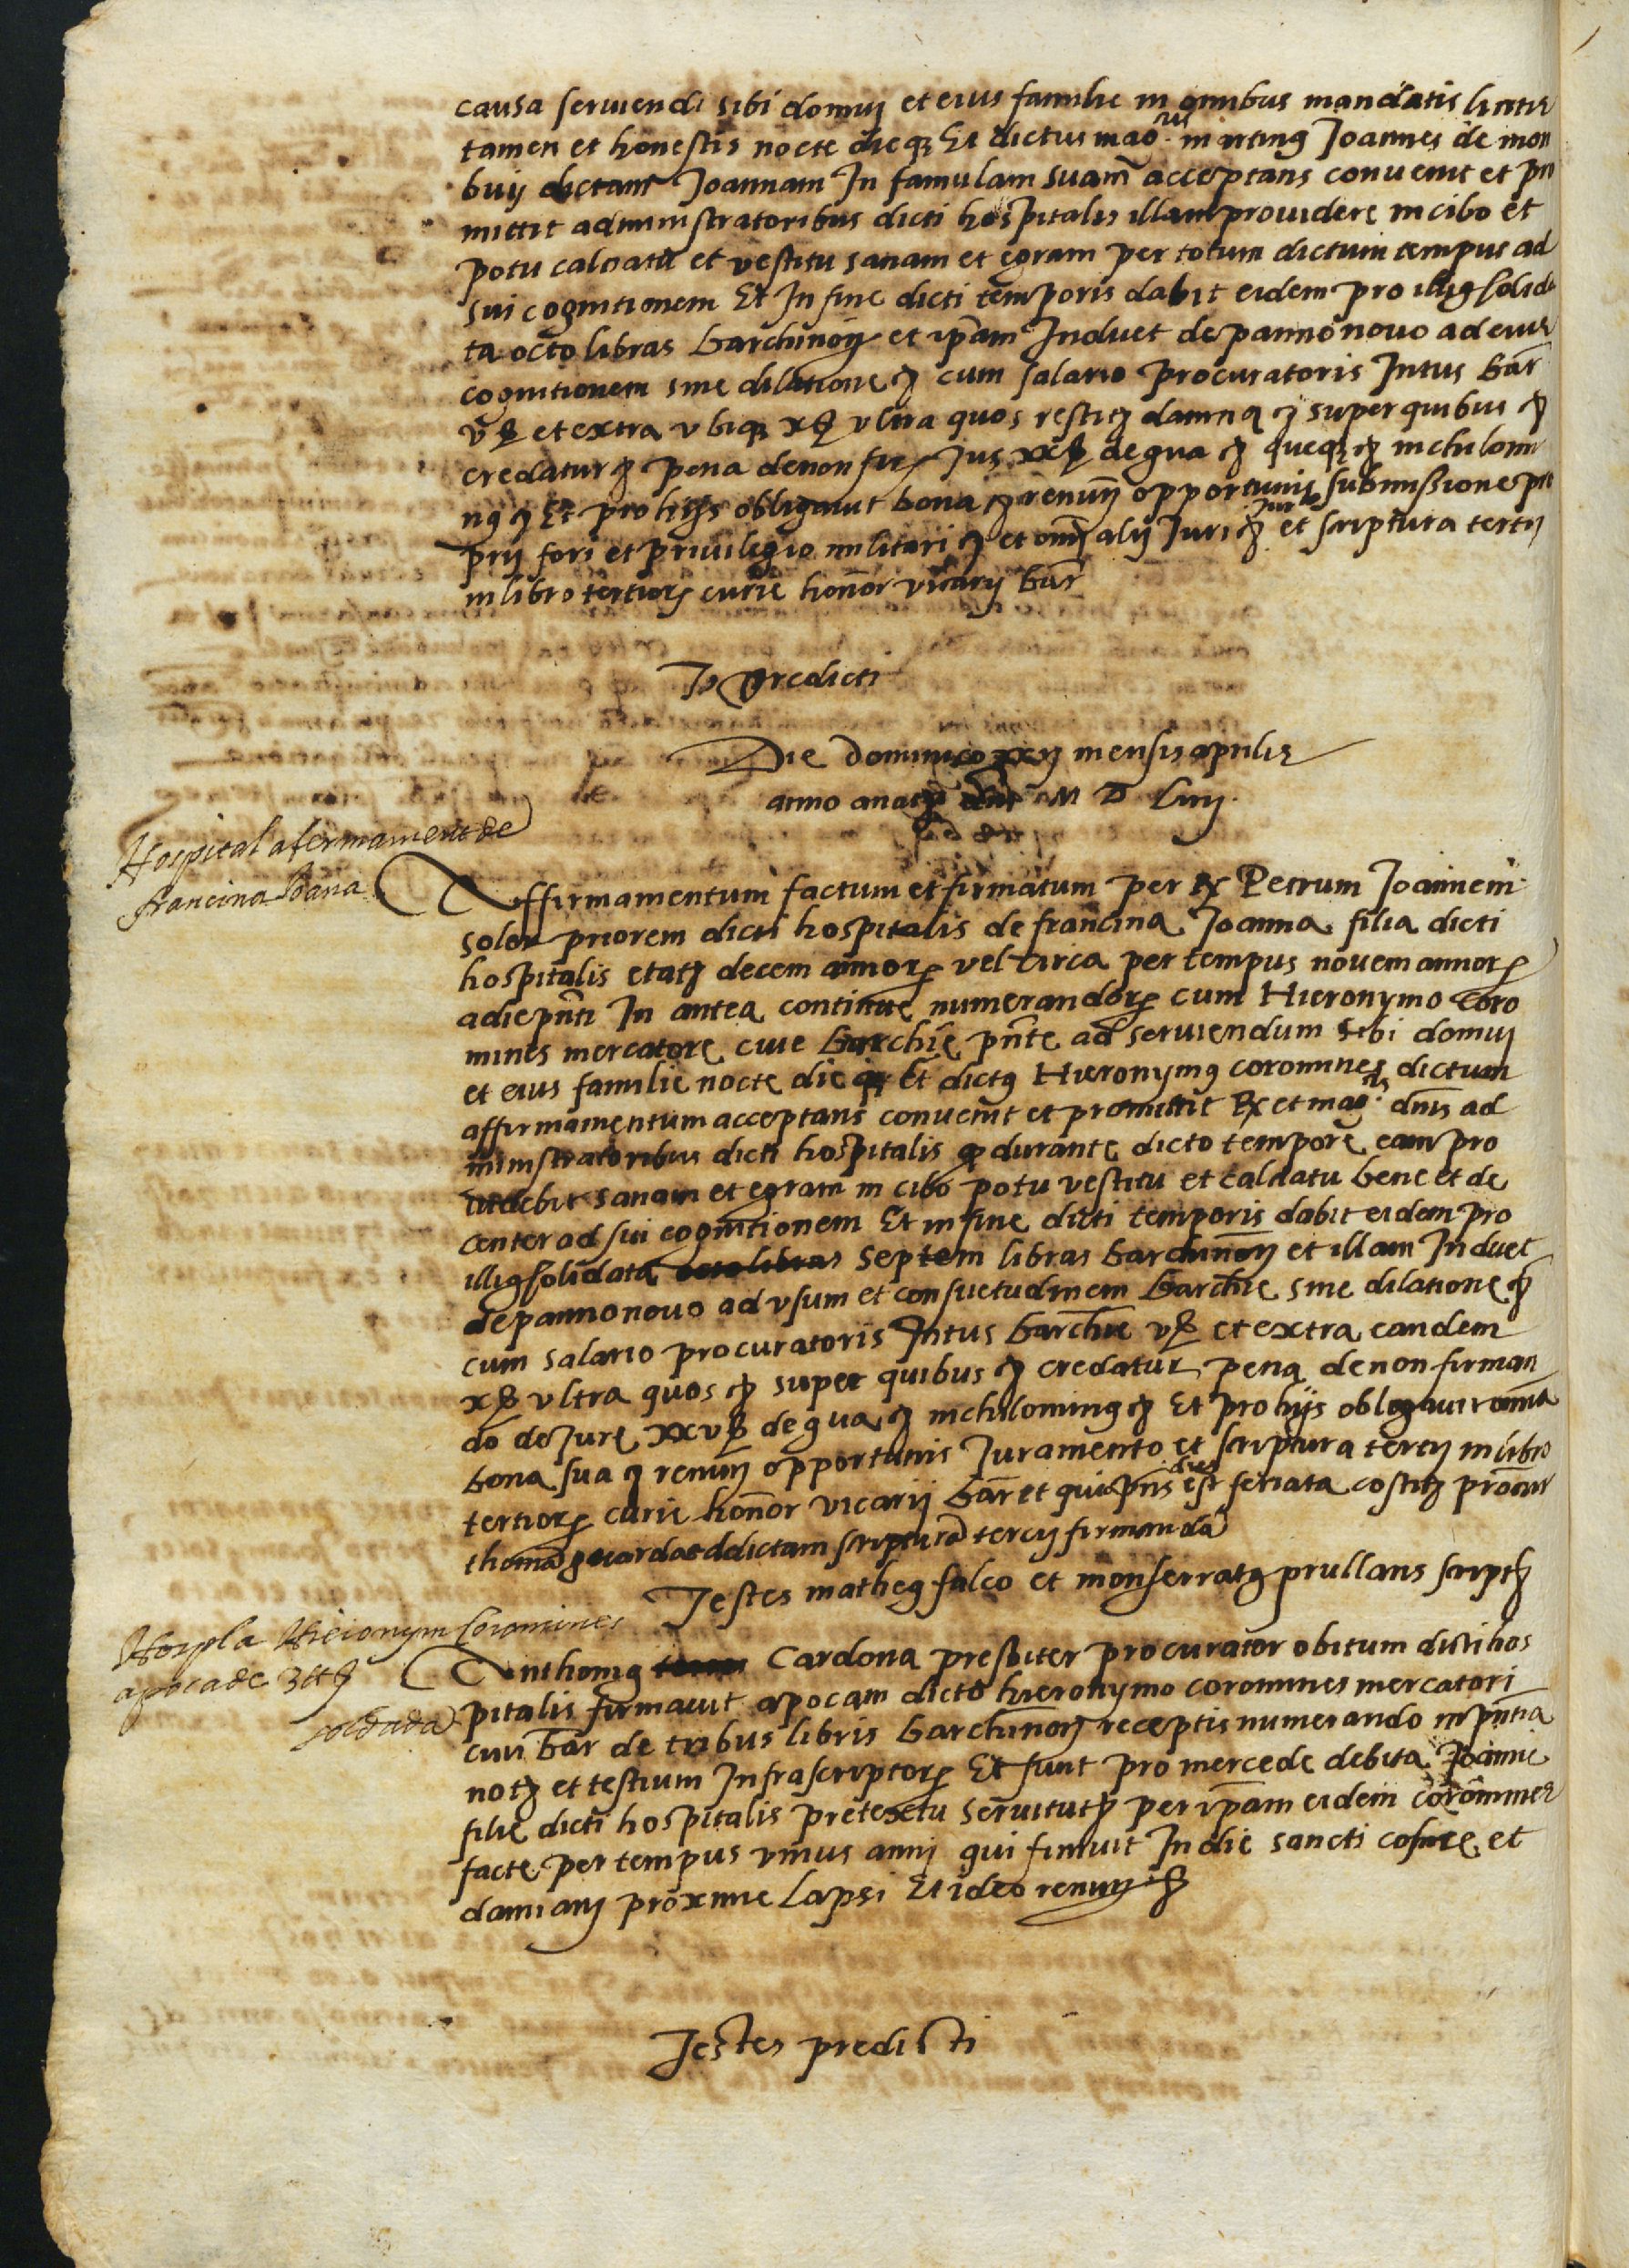 causa seruiendi sibi domuj et eius familie in omnibus mandatis licitis
tamen et honestis nocte dieq; Et dictus mag.cus martinus Joannes de mon
buij dictam Joannam In famulam suam acceptans conuenit et pro
mittit administratoribus dicti hospitalis illam prouidere in cibo et
potu calciatu et vestitu sanam et egram per totum dictum tempus ad
sui cognitionem Et In fine dicti temporis dabit eidem pro illius solida
ta octo libras barchinon et ipam Induet de panno nouo ad eius
cognitionem sine dilatione cum salario procuratoris Intus bar
vß et extra vbiq; xß vltra quos super quibus
credatur pena de non fir Jus xxß de qua
Et pro hijs obligauit bona renun opportunis submissione pro
prij fori et priuilegio militari et omni alij Juri Jur et scriptura tertij
in libro tertiorum curie honor vicarij bar
Ts predicti
Die dominico xxij mensis aprilis
anno a natte dni M D Liiij
Hospital afermament de
francina Joana
Affirmamentum factum et firmatum per Rx Petrum Joannem
soler priorem dicti hospitalis de francina Joanna filia dicti
hospitalis etatis decem annorum vel circa per tempus nouem annorum
a die pnti In antea continue numerandorum cum Hieronymo Coro
mines mercatore ciue barchie pnte ad seruiendum sibi domuj
et eius familie nocte die q; Et dictus Hieronymus coromines dictum
affirmamentum acceptans conuenit et promittit Rx et mag.cis dnis ad
ministratoribus dicti hospitalis q durante dicto tempore eam pro
uidebit sanam et egram in cibo potu vestitu et calciatu bene et de
center ad sui cognitionem Et in fine dicti temporis dabit eidem pro
illius solidata octo libras septem libras barchinon et illam Induet
de panno nouo ad vsum et consuetudinem barchie sine dilatione
cum salario procuratoris Intus barchie vß et extra eandem
xß vltra quos super quibus credatur pena de non firman
do de Jure xxvß de qua nichilominus Et pro hijs obligauit omnia
bona sua renun opportunis Juramento et scriptura tertij in libro
tertiorum curie honor vicarij bar et qui pns dies est feriata costit procur
thoma guarda ad dictam scriptura tercij firmanda
Testes matheus falco et monserratus prullans script
Hospla Hieronym Coromines
apoca de 3 ll
soldada
Anthonius Cardona presbiter procurator obituum dicti hos
pitalis firmauit apocam dicto hieronymo coromines mercatori
ciui bar de tribus libris barchinon receptis numerando in pntia
not et testium Infrascriptorum Et sunt pro mercede debita Joanne
filie dicti hospitalis pretextu seruitutis per ipam eidem coromines
facte per tempus vnius anni qui finiuit In die sancti cosme et
damianj proxime lapsi Et ideo renun
Testes predicti